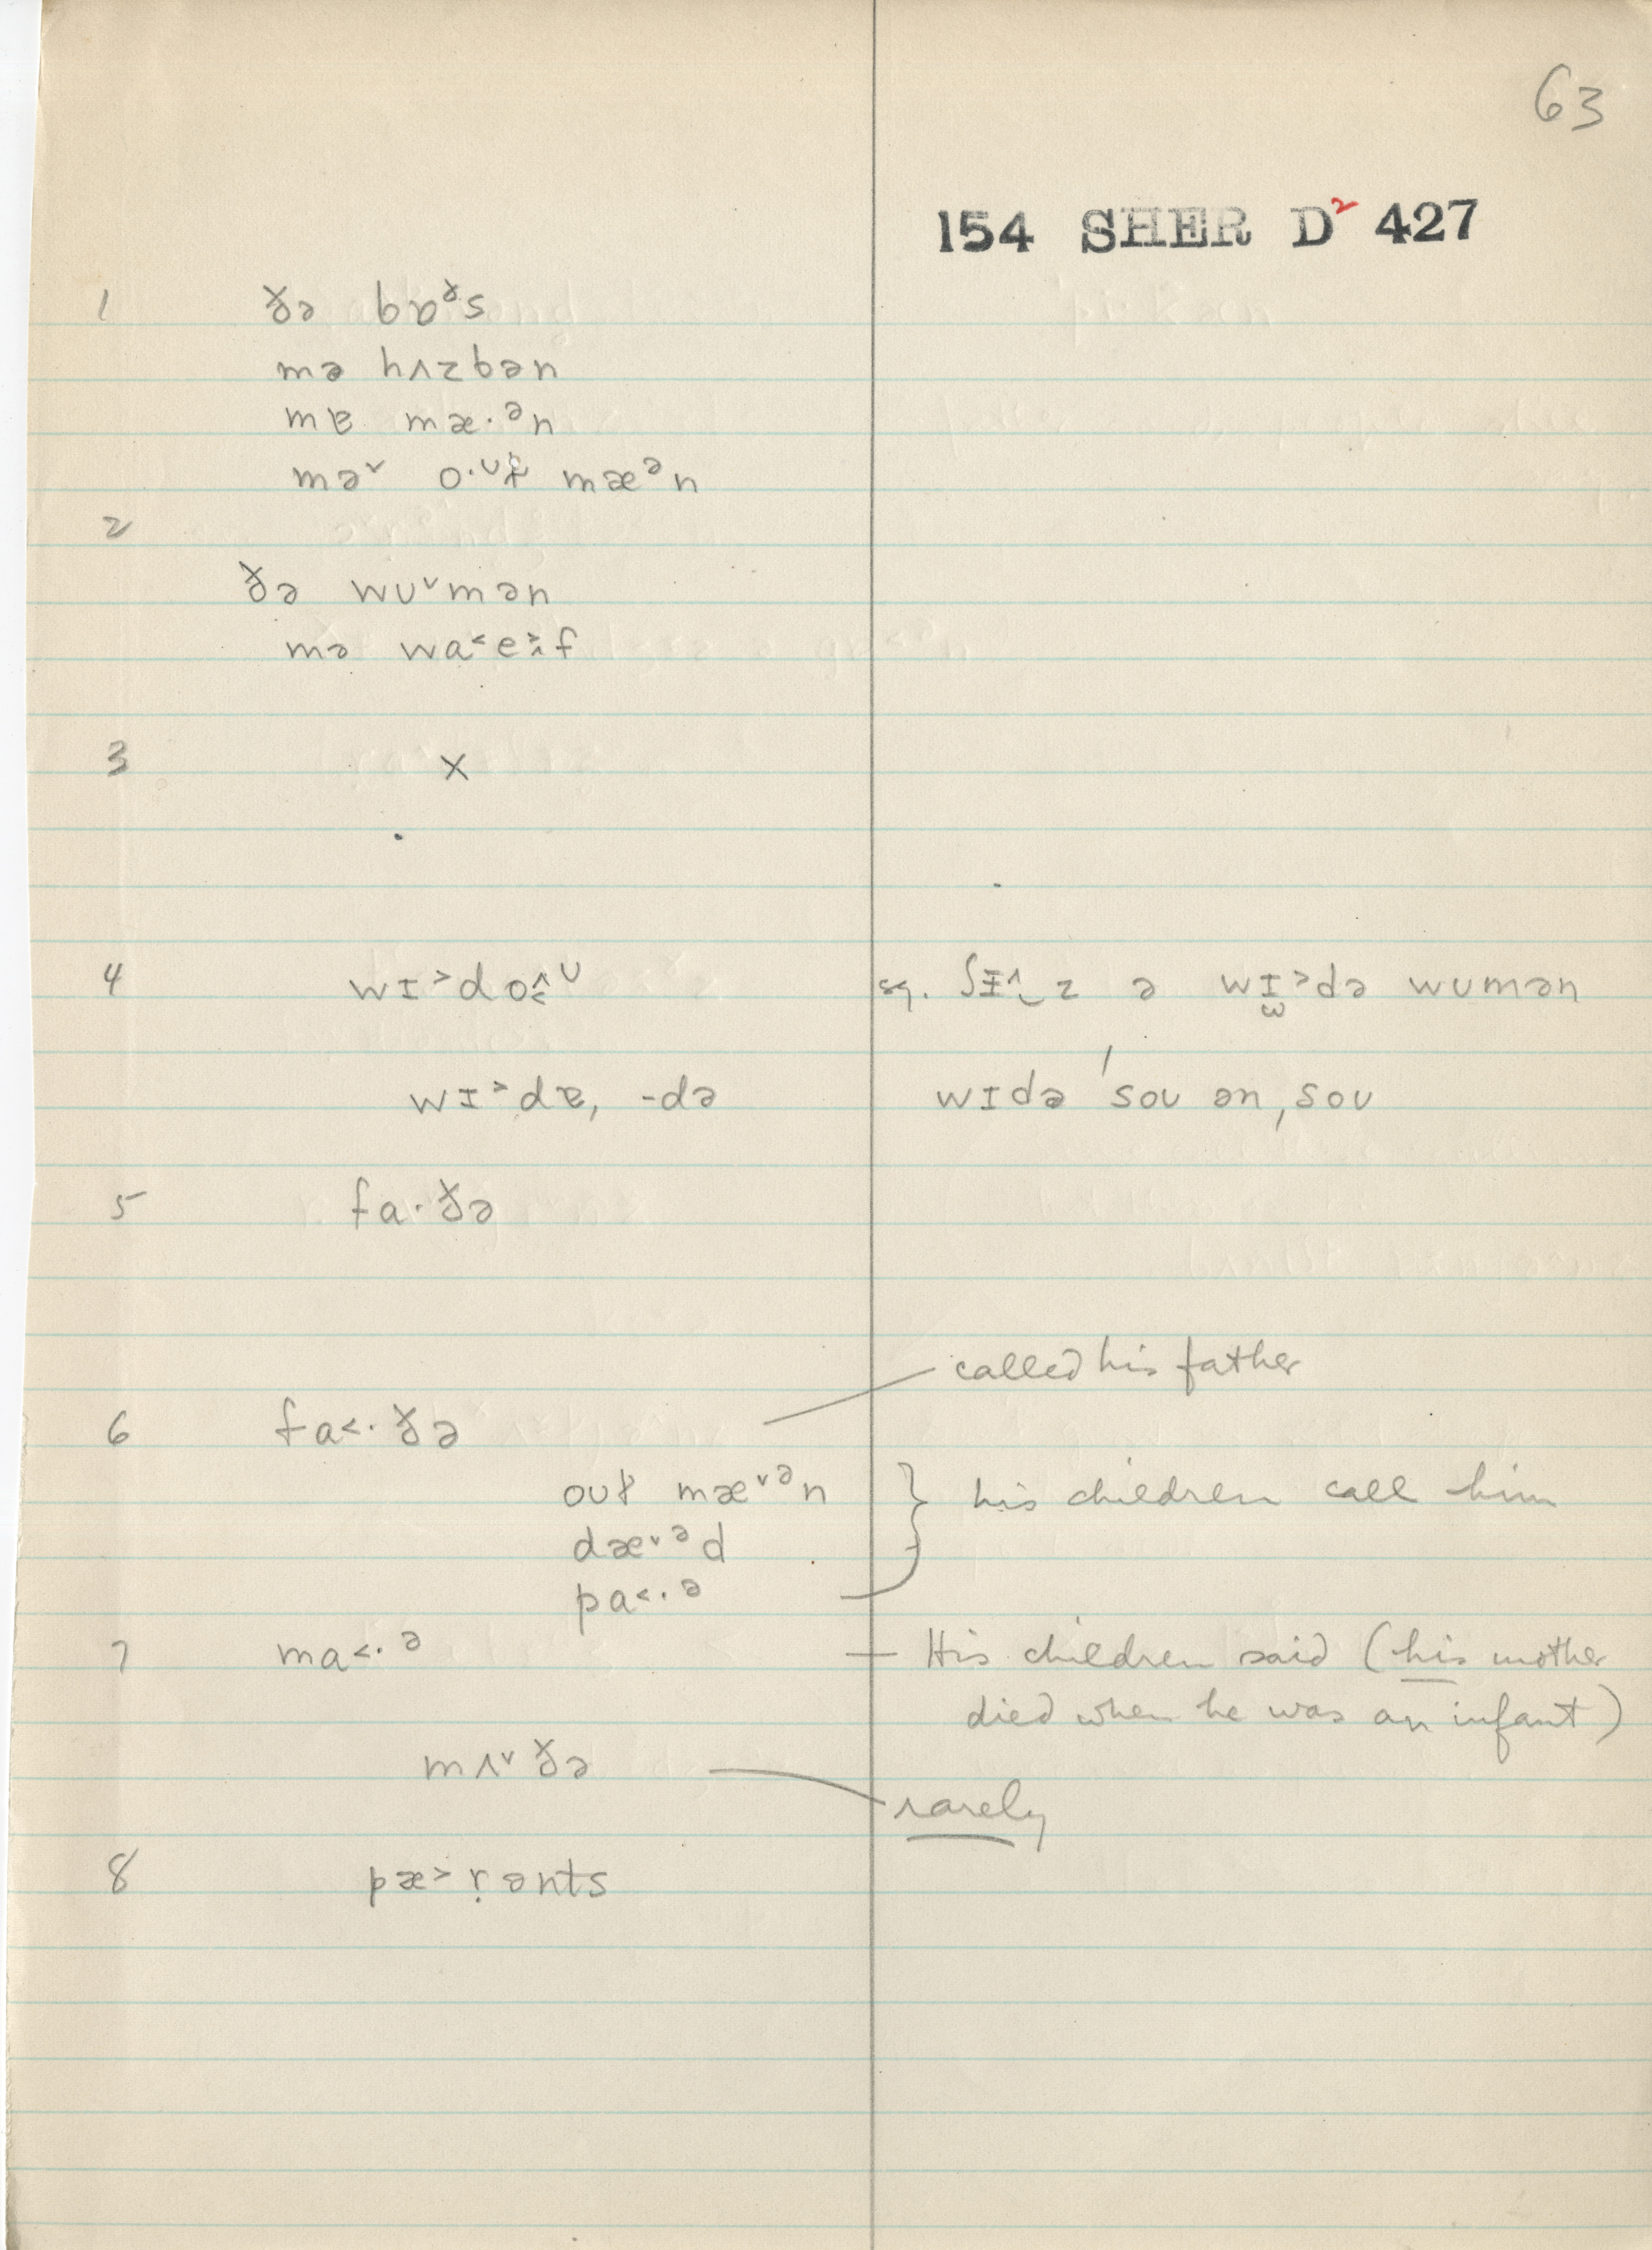 63
154 SHER D² 427
1 ðə bɒᵊs
mə hʌzbən
mɐ mæ·ᵊn
mə˅ o·ᵁɫ mæᵊn
2
ðə wʊ˅mən
mə wa˂e˃f
3 ×
4 wɪ˃do̭ᶷ sq. ʃɪ˄z ə wɪ˃də wumən
wɪ˃dɐ, -də wɪdə ˈsoʊ ənˌsoʊ
5 fa·ðə
called his father
6 fa˂·ðə
oʊɫ mæ˅ᵊn } his children call him
dæ˅ᵊd
pa˂·ᵊ
7 ma˂·ᵊ — His children said (his mother
died when he was an infant)
mʌ˅ðə
rarely
8 pæ˃ṛənts